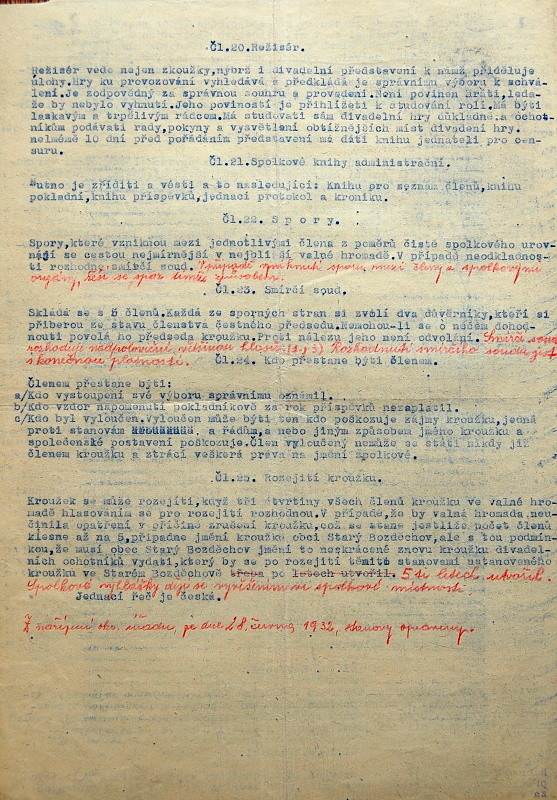 Čl.20.Režisér.
Režisér vede nejen zkoušky,nýbrž i divadelní představení k nimž přiděluje
úlohy.Hry ku provozování vyhledává a předkládá je správnímu výboru k schvá-
lení.Je zodpovědný za správnou souhru a provedení.Není povinen hráti,leda-
že by nebylo vyhnutí.Jeho povinností je přihlížeti k studování rolí.Má býti
laskavým a trpělivým rádcem.Má studovati sám divadelní hry důkladně,a ochot-
níkům podávati rady,pokyny a vysvětlení obtížnějších míst divadení hry.
nelméně 10 dní před pořádáním představení má dáti knihu jednateli pro cen-
suru.
Čl.21.Spolkové knihy administrační.
Nutno je zříditi a vésti a to následující: Knihu pro seznam členů,knihu
pokladní,knihu příspěvků,jednací protokol a kroniku.
Čl.22. S p o r y.
Spory,které vzniknou mezi jednotlivými člena z poměrů čistě spolkového urov-
nají se cestou nejmírnější v nejbližší valné hromadě.V případě neodkladnos-
ti rozhodne smírčí soud. V případě vzniknutí sporu mezi členy a spolkovými
orgány, řeší se spor tímže způsobem.
Čl.23. Smírčí soud.
Skládá se s 5 členů.Každá ze sporných stran si zvolí dva důvěrníky,kteří si
přiberou ze stavu členstva čestného předsedu.Nemohou-li se o něčem dohod-
nouti povolá ho předseda kroužku.Proti nálezu jeho není odvolání. Smírčí soud
rozhoduje nadpoloviční většinou hlasů. Rozhodnutí smírčího soudu jest
s konečnou platností.
Čl.24. Kdo přestane býti členem.
Členem přestane býti:
a/Kdo vystoupení své výboru správnímu oznámil.
b/Kdo vzdor napomenutí pokladníkově za rok příspěvků nezaplatil.
c/Kdo byl vyloučen.Vyloučen může býti ten kdo poškozuje zájmy kroužku,jedná
proti stanovám a řádům,a nebo jiným způsobem jméno kroužku a
společenské postavení poškozuje.Člen vyloučený nemůže se státi nikdy již
členem kroužku a ztrácí veškerá práva na jmění spolkové.
Čl.25. Rozejití kroužku.
Kroužek se může rozejíti,když tři čtvrtiny všech členů kroužku ve valné hro-
madě hlasováním se pro rozejití rozhodnou.V případě,že by valná hromada,neu-
činila opatření v příčině zrušení kroužku,což se stane jestliže počet členů
klesne až na 5,připadne jmění kroužku obci Starý Bozděchov,ale s tou podmín-
kou,že musí obec Starý Bozděchov jmění to nezkráceně znovu kroužku divadel-
ních ochotníků vydati,který by se po rozejití těmito stanovami ustanoveného
kroužku ve Starém Bozděchově třeba po letech utvořil. 5ti letech utvořil.
Spolkové vyhlášky dějí se vyvěšením ve spolkové místnosti
Jednací řeč je česká.
Z nařízení okr. úřadu, ze dne 28. června 1932, stanovy opraveny.